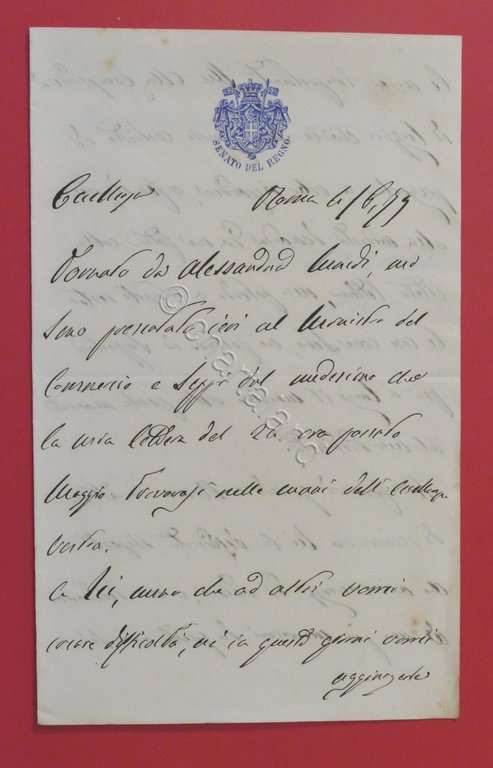 SENATO DEL REGNO
Eccellenza
Roma li /6/79
Tornato da Alessandria lunedì, mi
sono presentato ieri al Ministro del
Commercio e seppi dal medesimo che
la mia lettera del 22 ora passato
Maggio trovavasi nelle mani dell'Eccellenza
vostra.
A lei, meno che ad altri vorrei
creare difficoltà, nè in questi giorni vorrei
aggiungerle
© chartaaro